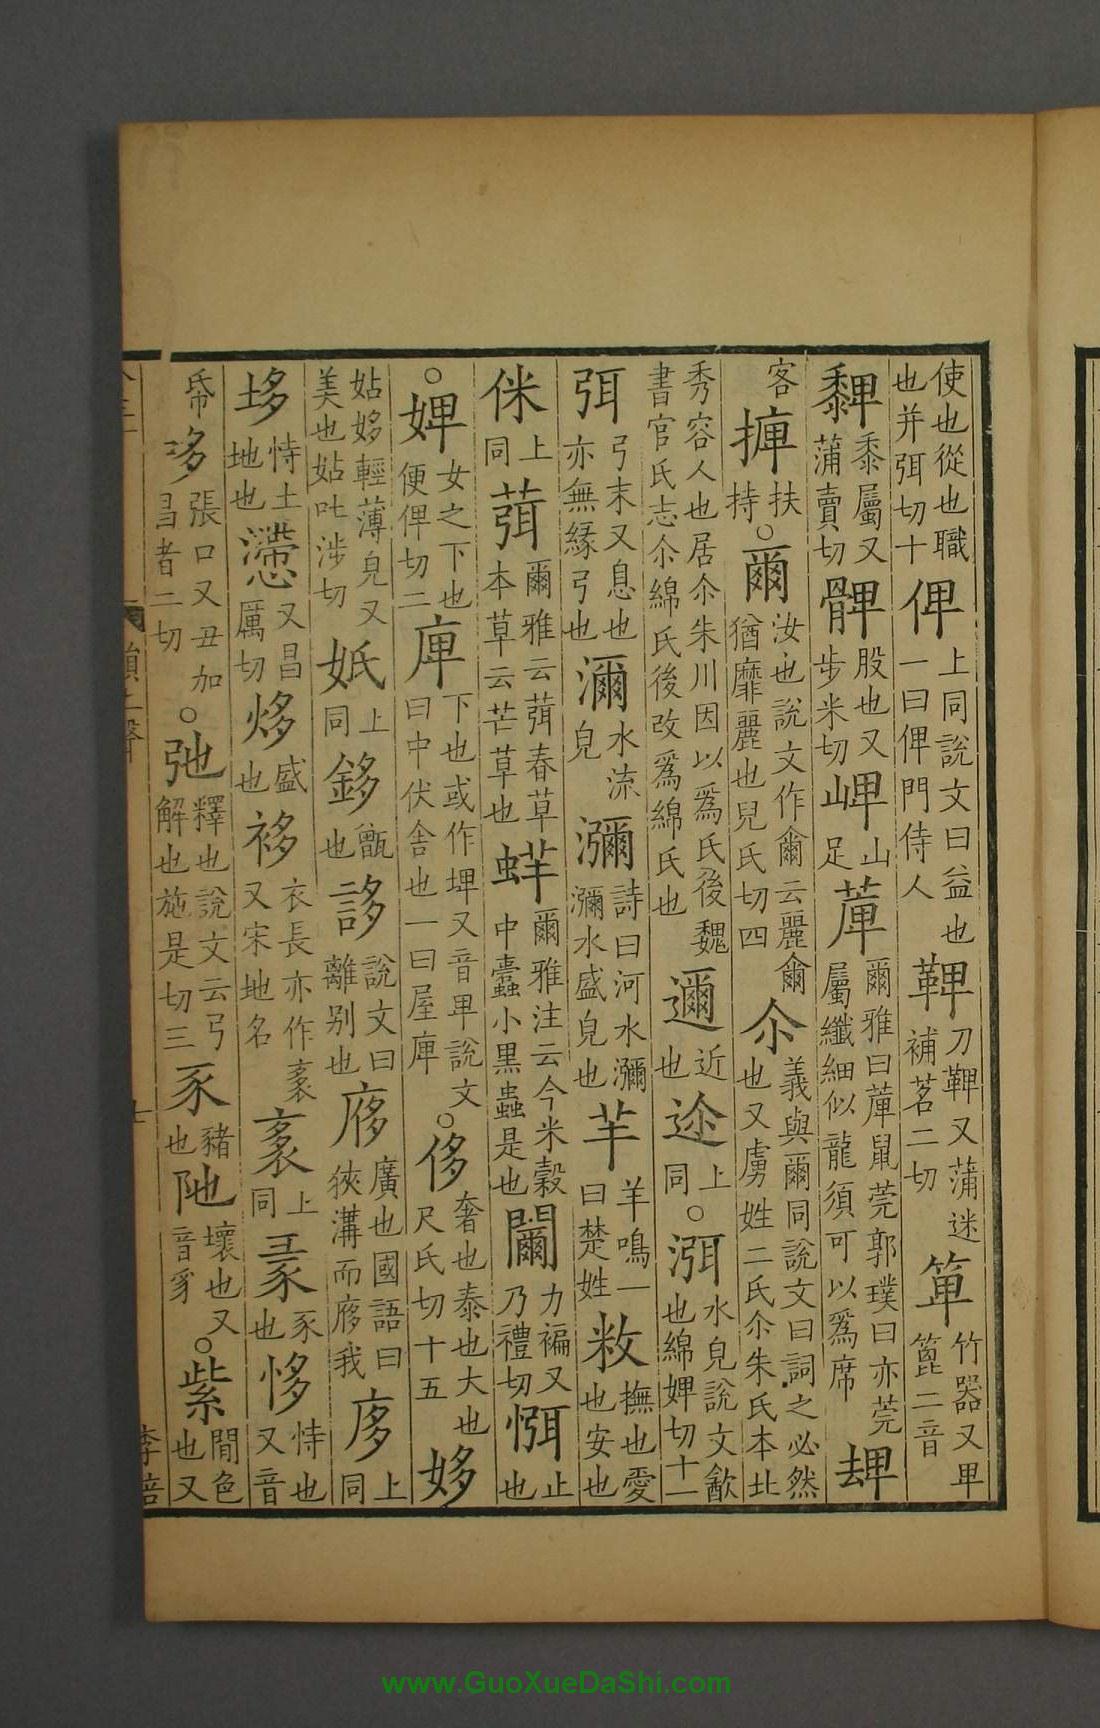 使也從也職也并弭切十俾上同說文曰益也一曰俾門侍人鞞刀鞞又蒲迷補茗二切箄竹器又卑篚二音
𪏽黍屬又蒲賣切髀股也又步米切崥山足萆爾雅曰萆鼠莞郭璞曰亦莞屬纖細似龍須可以爲席
客捭扶持○爾汝也說文作爾云麗爾猶靡麗也兒氏切四尒義與爾同說文曰詞之必然也又虜姓二氏尒朱氏本北
秀容人也居尒朱川因以爲氏後魏書官氏志尒綿氏後改爲綿氏也邇近也迩上同○渳水皃說文歠也綿婢切十一
弭弓末又息也亦無緣弓也瀰水流皃瀰詩曰河水瀰瀰水盛皃也羋羊鳴一曰楚姓敉撫也愛也安也
侎上同葞爾雅云葞春草本草云芒草也蛘爾雅注云今米穀中蠹小黑蟲是也𨷻力褊又乃禮切㥝止也
○婢女之下也便俾切二庳下也或作埤又音卑說文曰中伏舍也一曰屋庳○侈奢也泰也大也尺氏切十五姼
姑姼輕薄皃又美也姑吐涉切㚵上同鉹甑也誃說文曰離別也㢋廣也國語曰狹溝而㢋我㢁上同
垑恃土地也懘又昌厲切㶴盛也袳衣長亦作袲又宋地名袲上同彖豕也恀恃也又音
𢂑哆張口又丑加昌者二切○弛釋也說文云弓解也施是切三豕豬也阤壞也又音豸○紫閒色也又